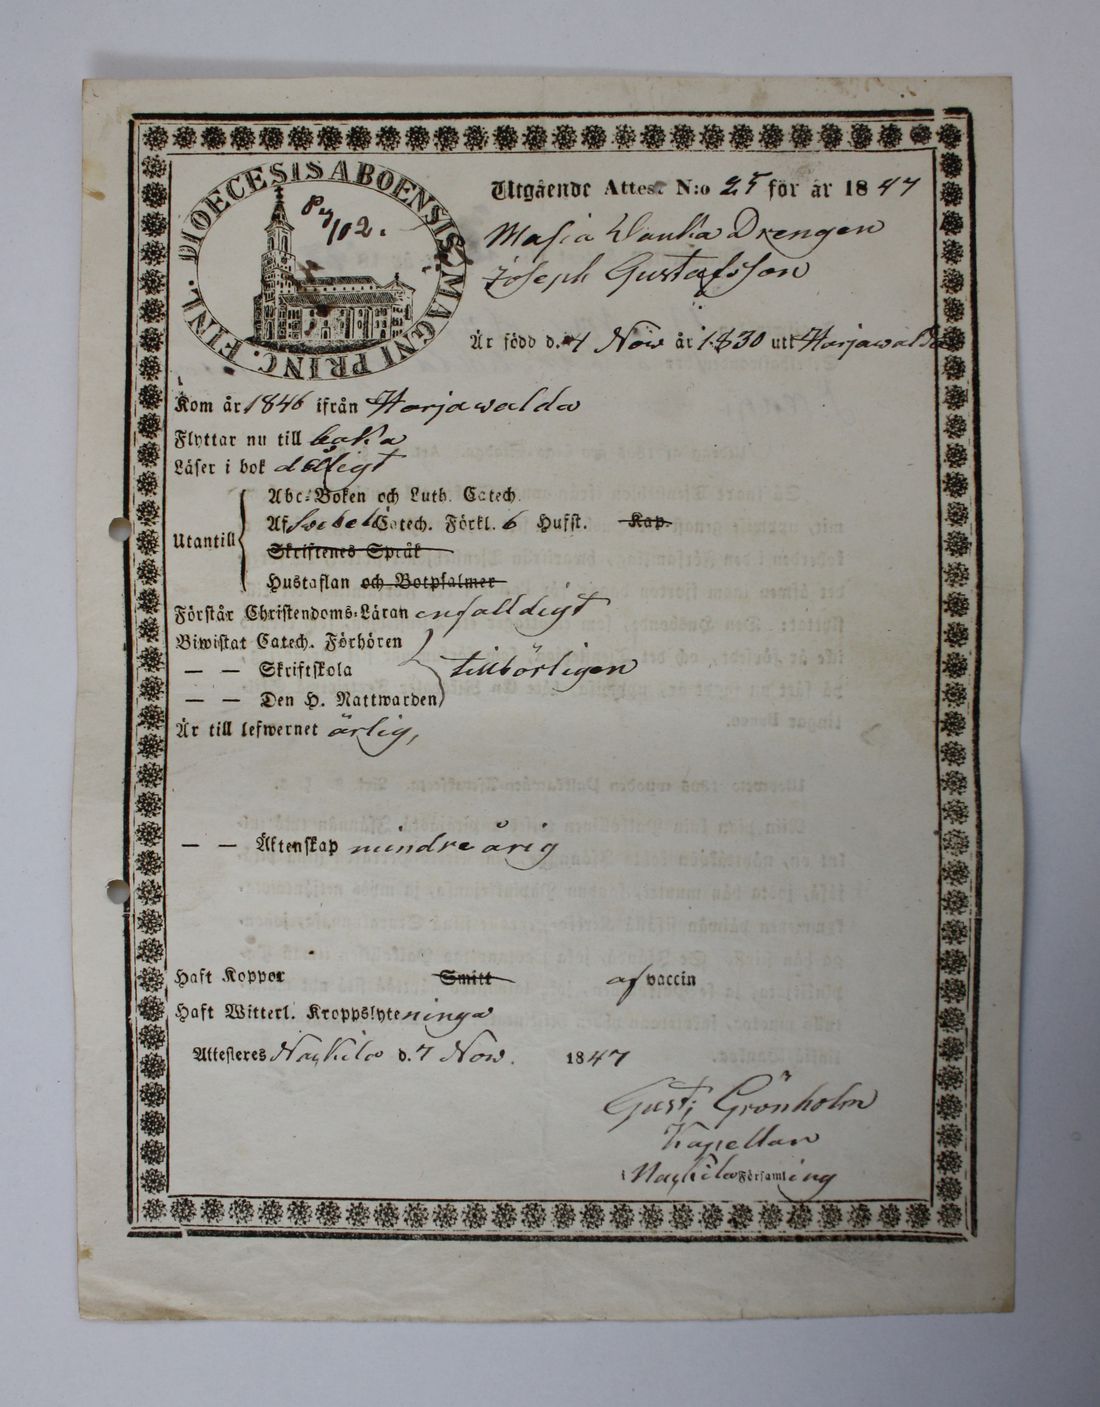 DIOECESIS ABOENSIS MAGNI PRINC. FINL.
Utgående Attest N:o 25 för år 1847
Drengen
Joseph Gustafsson
Är född d. 4 Nov år 1830 uti Harjawalda
Kom år 1846 ifrån Harjawalda
Flyttar nu till baka
Läser i bok dåligt
Utantill
Abc-Boken och Luth. Catech.
Af Svebelii Catech. Förkl. 6 Hufst. Kap.
Skriftenes Språk
Hustaflan och Botpsalmer
Förstår Christendoms-Läran enfalldigt
Biwistat Catech. Förhören
— — Skriftskola tillbörligen
— — Den H. Nattwarden
Är till lefwernet ärlig,
— — Äktenskap mindre årig
Haft Koppor Smitt af vaccin
Haft Witterl. Kroppslyte ninga
Attesteres Nakkila d. 7 Nov. 1847
Gust: Grönholm
Kapellan
i Nakkila Församling